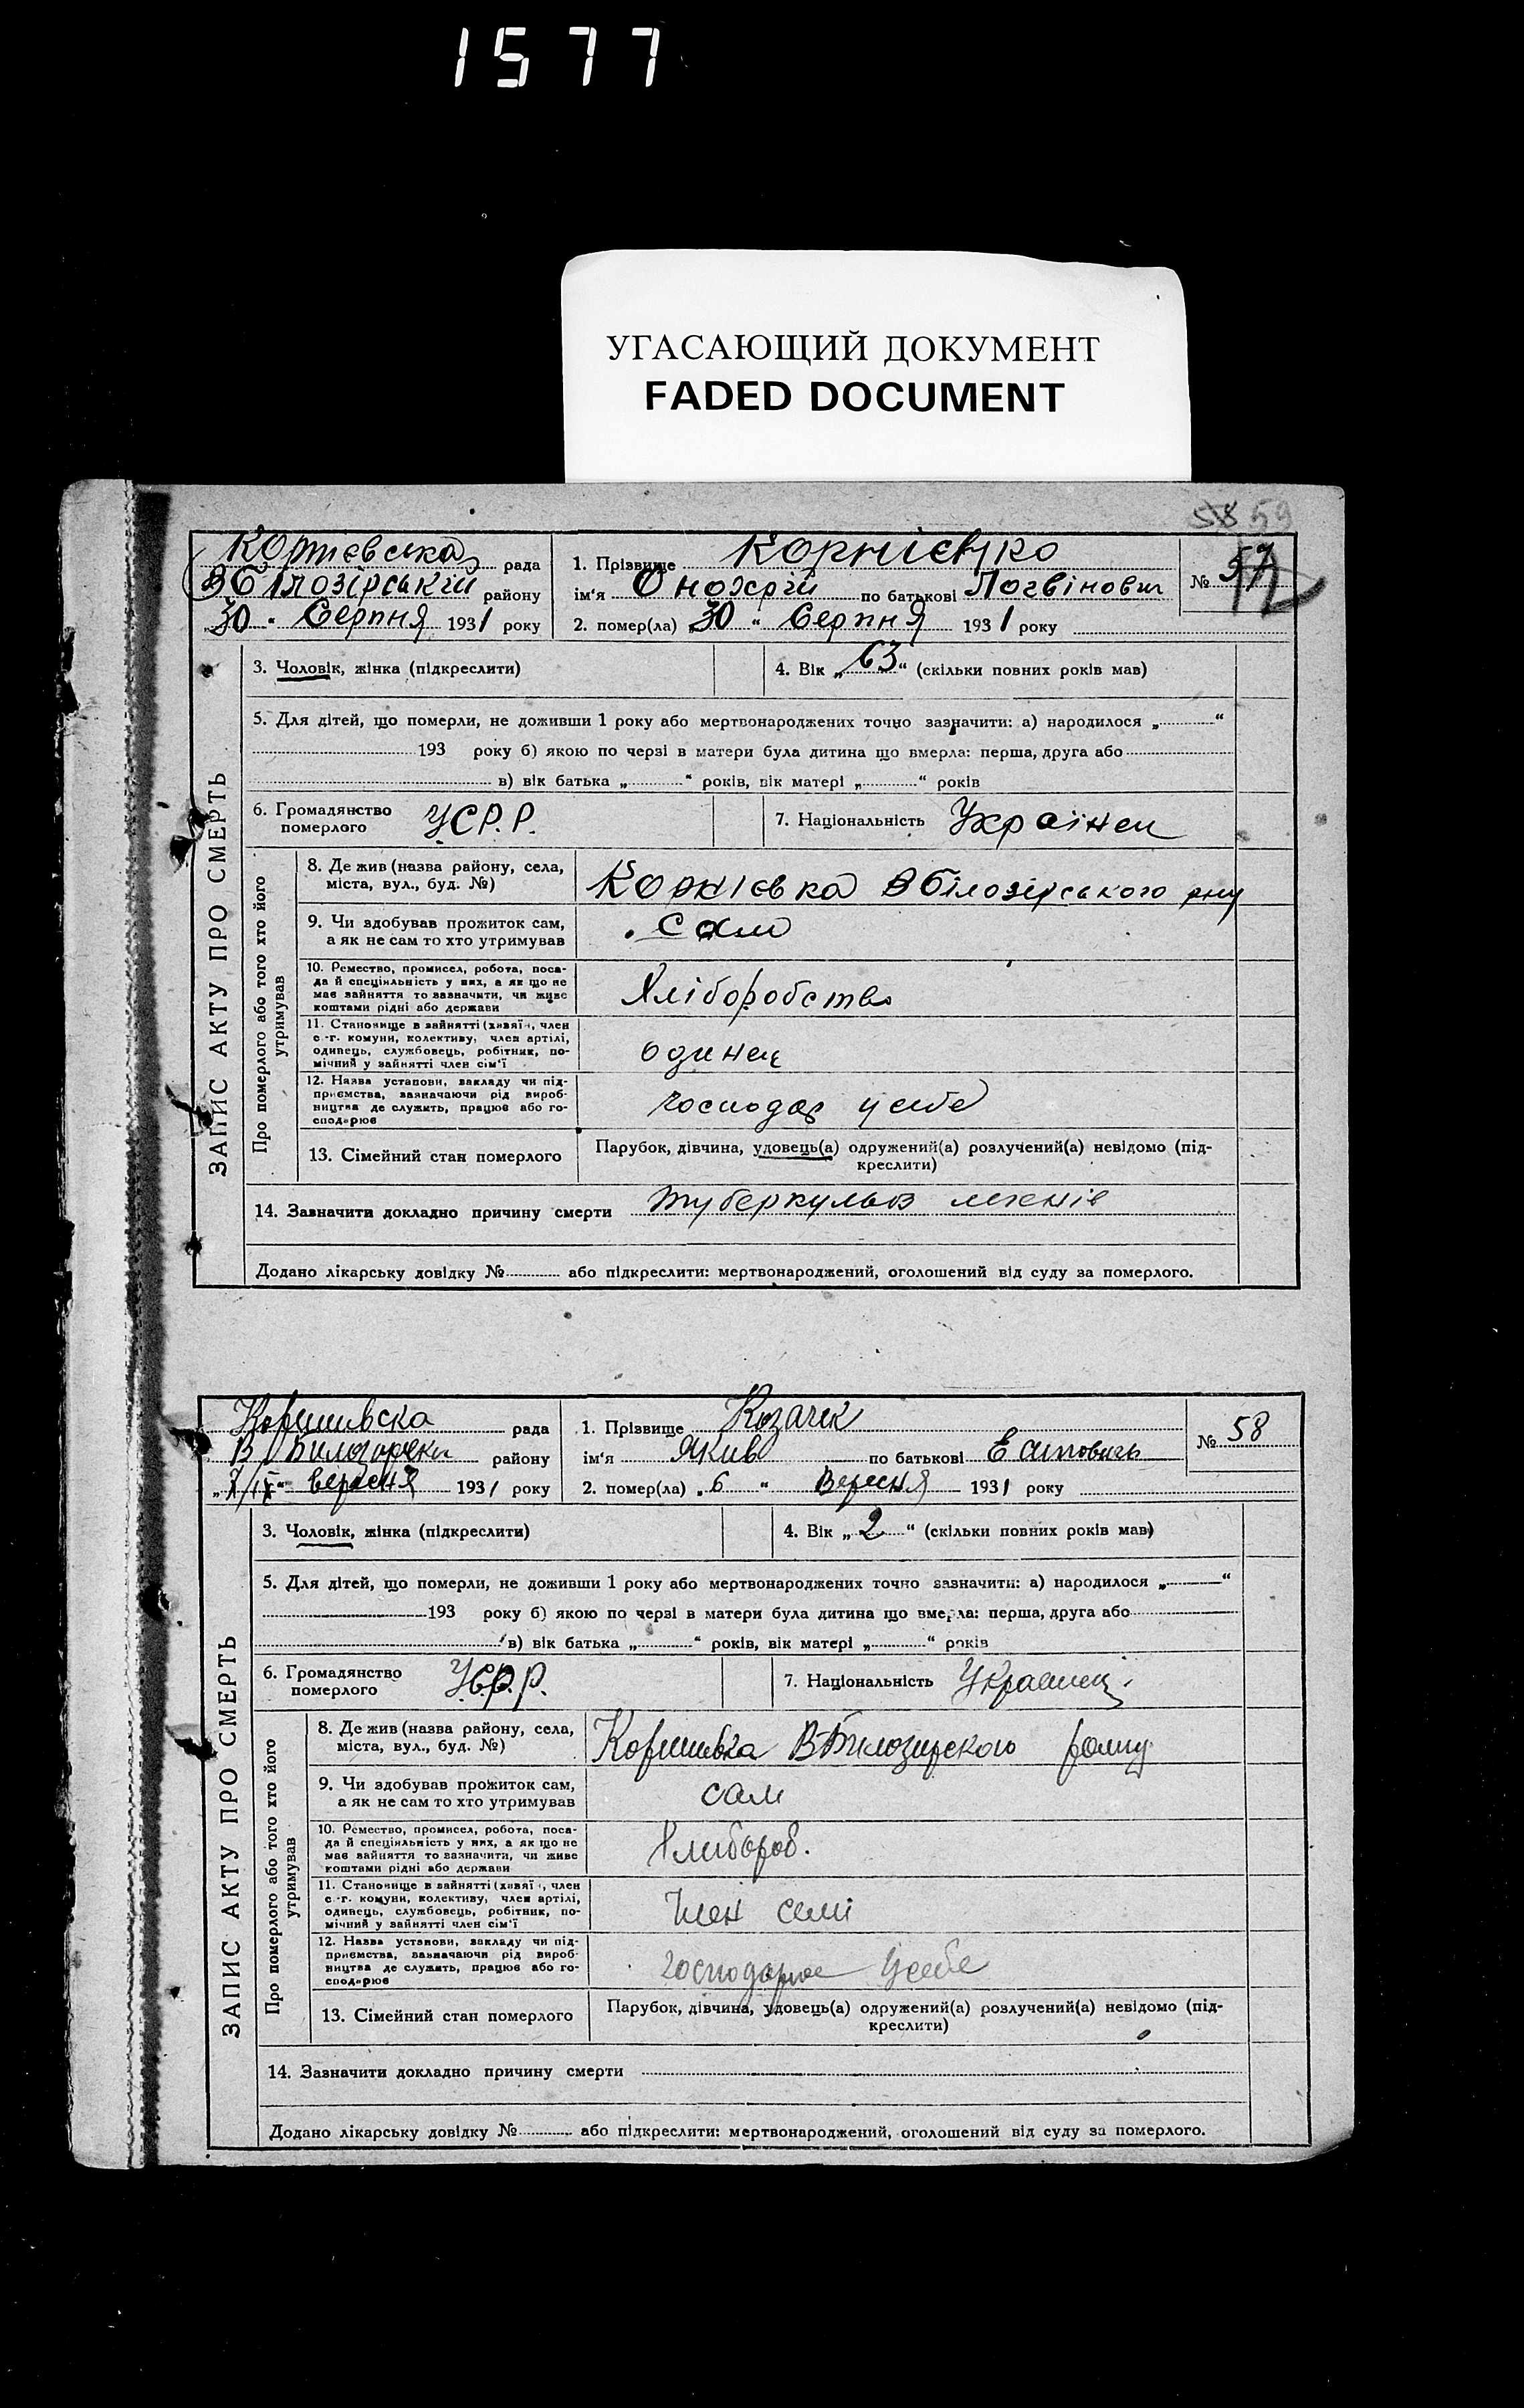 1577
УГАСАЮЩИЙ ДОКУМЕНТ
FADED DOCUMENT
58 59
рада
ВБілозірський району
„30“ Серпня 1931 року
1. Прізвище Корнієнко
ім‘я Онохрій по батькові Логвінович
2. помер(ла) „30“ Серпня 1931 року
№ 57
ЗАПИС АКТУ ПРО СМЕРТЬ
3. Чоловік, жінка (підкреслити)
4. Вік „63“ (скільки повних років мав)
5. Для дітей, що померли, не доживши 1 року або мертвонароджених точно зазначити: а) народилося „ “
193 року б) якою по черзі в матери була дитина що вмерла: перша, друга або
в) вік батька „ “ років, вік матері „ “ років
6. Громадянство
померлого УСР.Р.
7. Національність Українец
Про померлого або того хто його
утримував
8. Де жив (назва району, села,
міста, вул., буд. №)
ВБілозірського рну
9. Чи здобував прожиток сам,
а як не сам то хто утримував
Сам
10. Ремество, промисел, робота, поса-
да й спеціяльність у них, а як що не
має зайняття то зазначити, чи живе
коштами рідні або держави
Хліборобство
11. Становище в зайнятті (хазяїн, член
с.-г. комуни, колективу, член артілі,
одинець, службовець, робітник, по-
мічний у зайнятті член сім‘ї
одинец
12. Назва установи, закладу чи під-
приємства, зазначаючи рід вироб-
ництва де служить, працює або го-
сподарює
господар у себе
13. Сімейний стан померлого
Парубок, дівчина, удовець(а) одружений(а) розлучений(а) невідомо (під-
креслити)
14. Зазначити докладно причину смерти туберкульоз
Додано лікарську довідку № або підкреслити: мертвонароджений, оголошений від суду за померлого.
рада
району
вересня 1931 року
1. Прізвище Козачек
ім‘я Якив по батькові
2. помер(ла) „6“ Вересня 1931 року
№ 58
ЗАПИС АКТУ ПРО СМЕРТЬ
3. Чоловік, жінка (підкреслити)
4. Вік „2“ (скільки повних років мав)
5. Для дітей, що померли, не доживши 1 року або мертвонароджених точно зазначити: а) народилося „ “
193 року б) якою по черзі в матери була дитина що вмерла: перша, друга або
в) вік батька „ “ років, вік матері „ “ років
6. Громадянство
померлого У.С.Р.Р.
7. Національність
Про померлого або того хто його
утримував
8. Де жив (назва району, села,
міста, вул., буд. №)
В-Билозирского
9. Чи здобував прожиток сам,
а як не сам то хто утримував
сам
10. Ремество, промисел, робота, поса-
да й спеціяльність у них, а як що не
має зайняття то зазначити, чи живе
коштами рідні або держави
Хлибороб.
11. Становище в зайнятті (хазяїн, член
с.-г. комуни, колективу, член артілі,
одинець, службовець, робітник, по-
мічний у зайнятті член сім‘ї
член семі
12. Назва установи, закладу чи під-
приємства, зазначаючи рід вироб-
ництва де служить, працює або го-
сподарює
господарює у себе
13. Сімейний стан померлого
Парубок, дівчина, удовець(а) одружений(а) розлучений(а) невідомо (під-
креслити)
14. Зазначити докладно причину смерти
Додано лікарську довідку № або підкреслити: мертвонароджений, оголошений від суду за померлого.